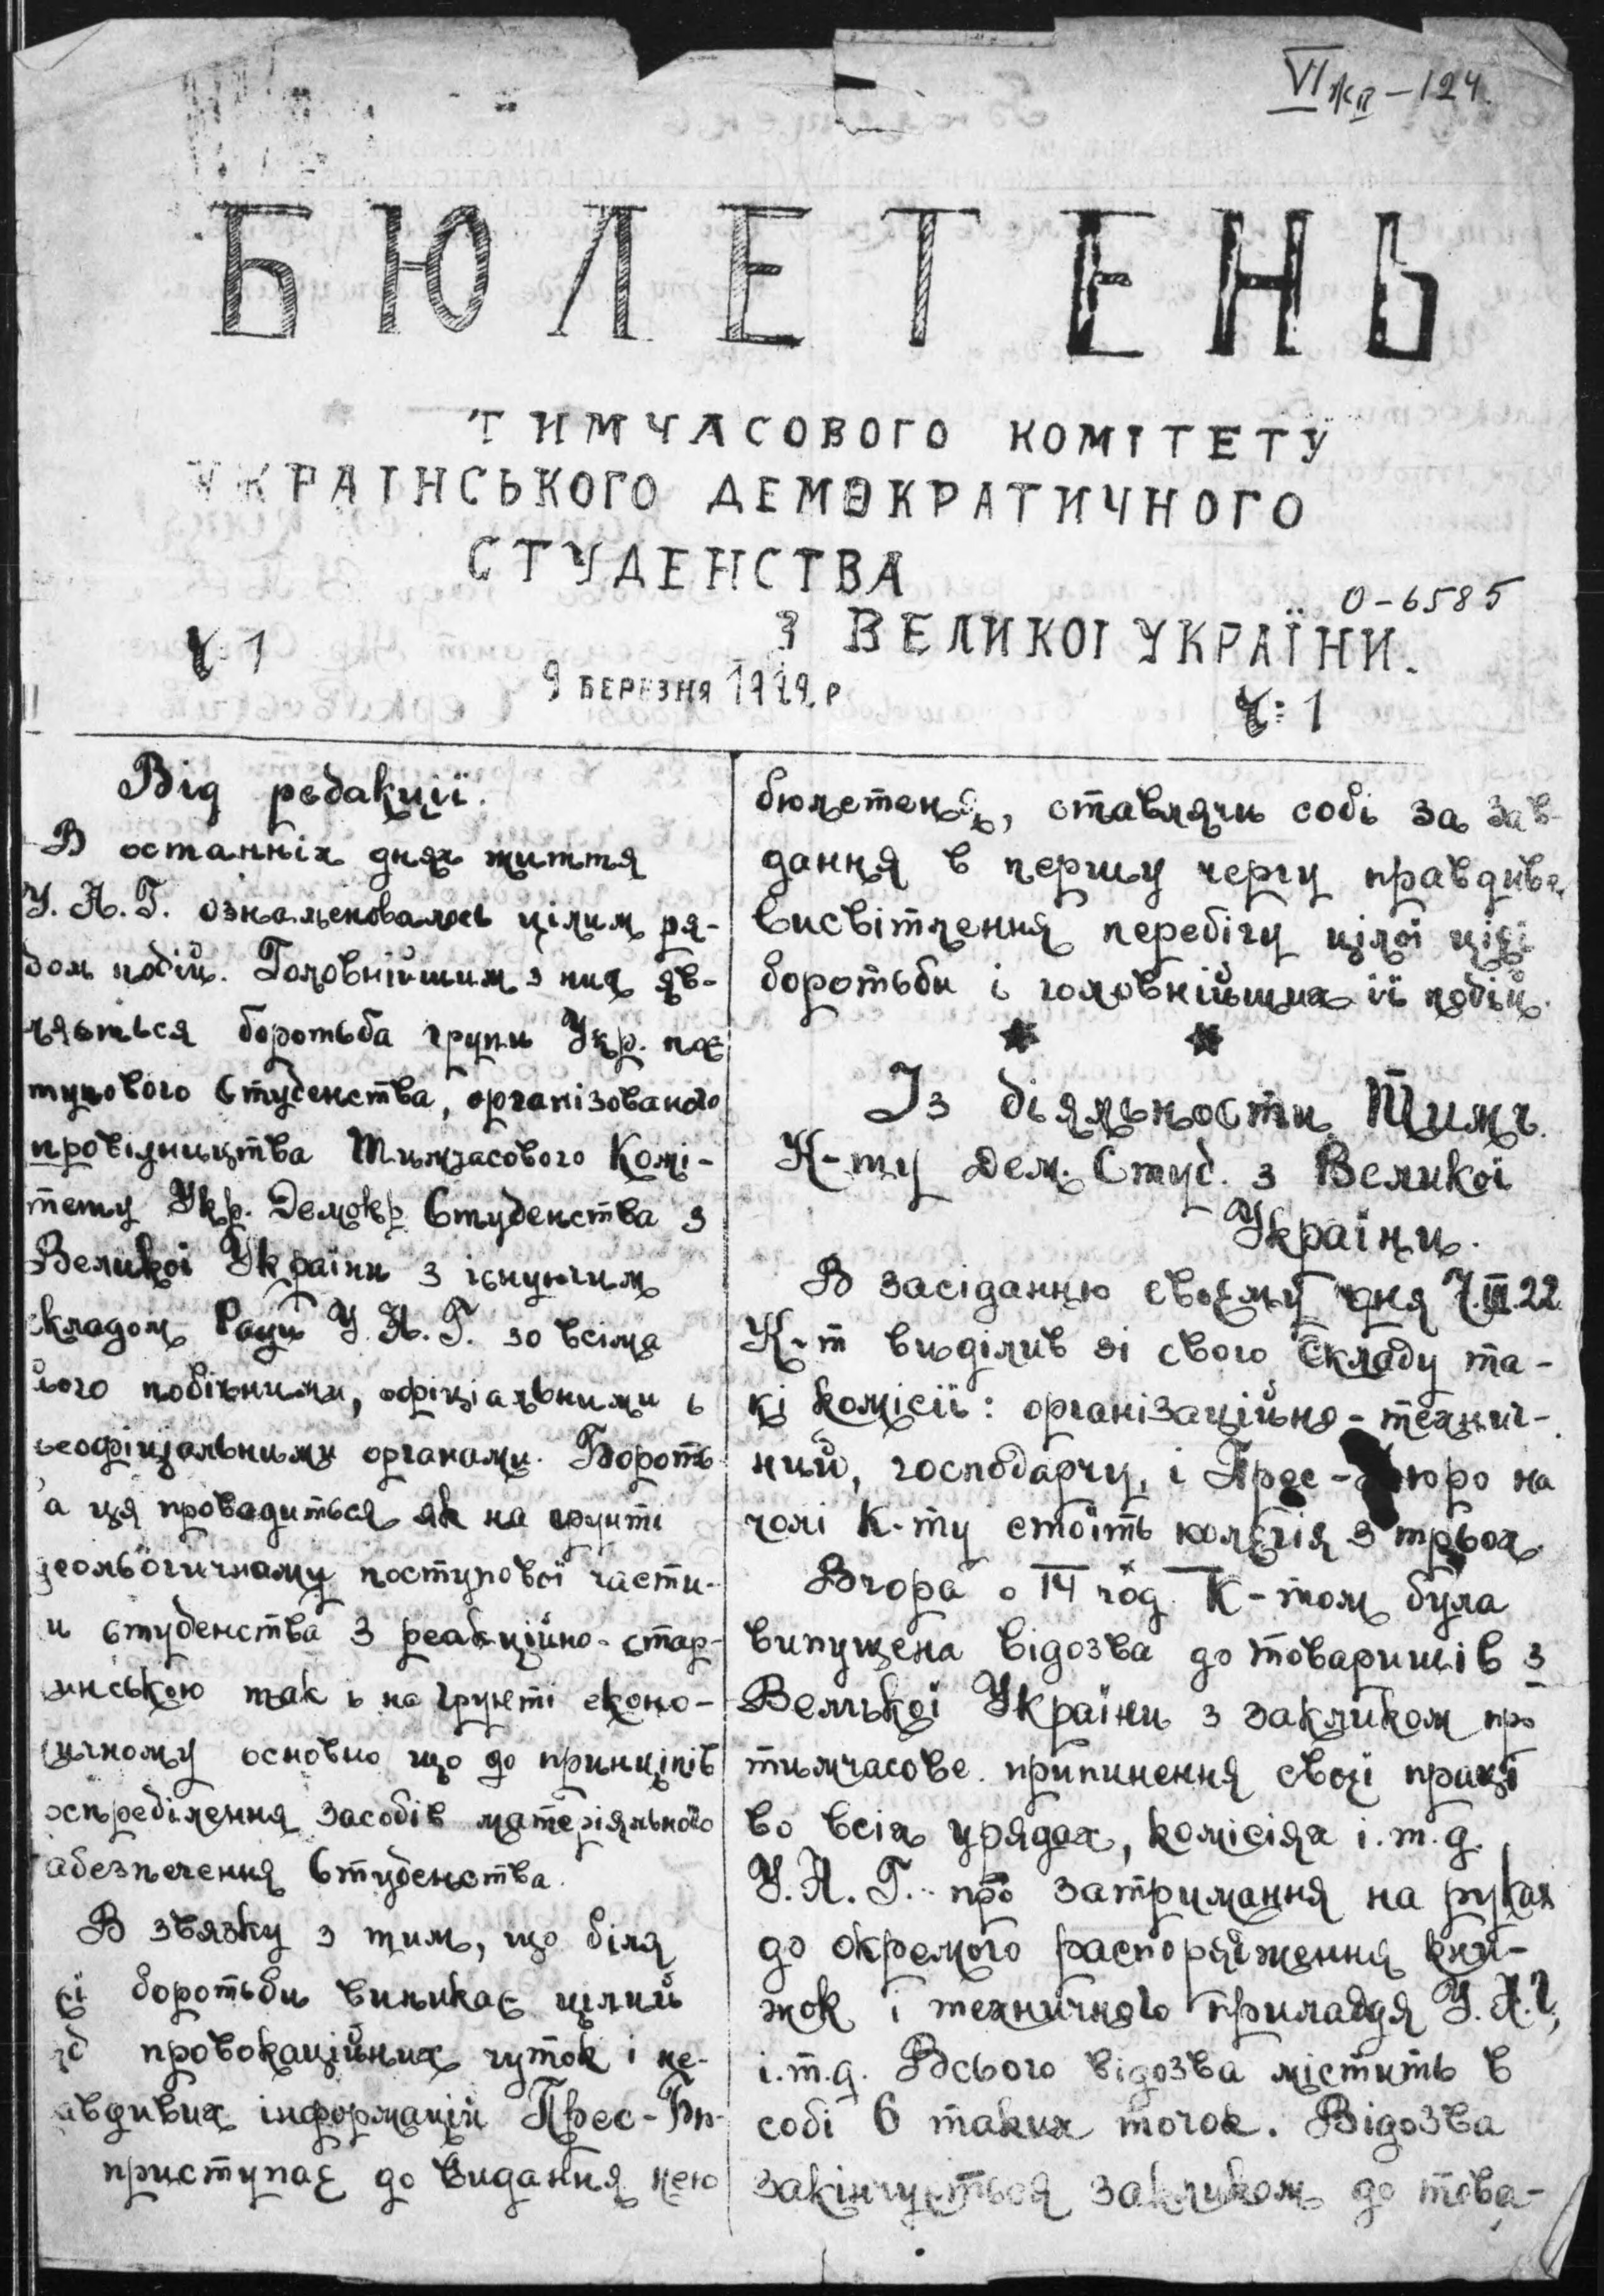 VI жп - 124.
БЮЛЕТЕНЬ
ТИМЧАСОВОГО КОМІТЕТУ
УКРАІНСЬКОГО ДЕМОКРАТИЧНОГО
СТУДЕНСТВА
О-6585
З ВЕЛИКОІ УКРАЇНИ.
Ч: 1
9 БЕРЕЗНЯ 1922 р
Ч: 1
Від редакціі.
В останніх днях життя
У. А. Г. ознаменовалось цілим ря-
дом подій. Головнійшим з них яв-
ляється боротьба групи Укр. пос
тупового студенства, организованого
провідництва Тимчасового Комі-
тету Укр. Демокр Студенства з
Великоі Украіни з існуючим
складом Ради У. А. Г. зо всіма
його побічними, офіціальними і
неофіціальними органами. Бороть
а ця провадиться як на грунті
деольогичному поступовоі части-
и студенства з реакційно-стар-
инською так і на грунті еконо-
ичному основно що до принціпів
оспреділення засобів матеріяльного
абезпечення студенства.
В звязку з тим, що біля
сі боротьби виникає цілий
яд провокаційних чуток і не-
авдивих інформацій Прес-Бю-
приступає до видання цего
бюлетеня, ставлячи собі за зав-
дання в першу чергу правдиве
висвітлення перебігу цілоі ціеі
боротьби і головнійших іі подій.
* *
Із діяльности Тимч.
К-ту Дем. Студ. з Великоі
Украіни.
В засіданню своєму дня 7.III.22
К-т виділив зі свого складу та-
кі комісіі: організаційно-технич-
ний, господарчу, і Прес-Бюро на
чолі К-ту стоіть колегія з трьох.
Вчора о 14 год К-том була
випущена відозва до товаришів з
Великоі Украіни з закликом про
тимчасове припинення своєі праці
во всіх урядах, комісіях і.т.д.
У. А. Г. про затримання на руках
до окремого распорядження кни-
жок і техничного приладдя У. А. Г,
і.т.д. Всього відозва містить в
собі 6 таких точок. Відозва
закінчується закликом до това-